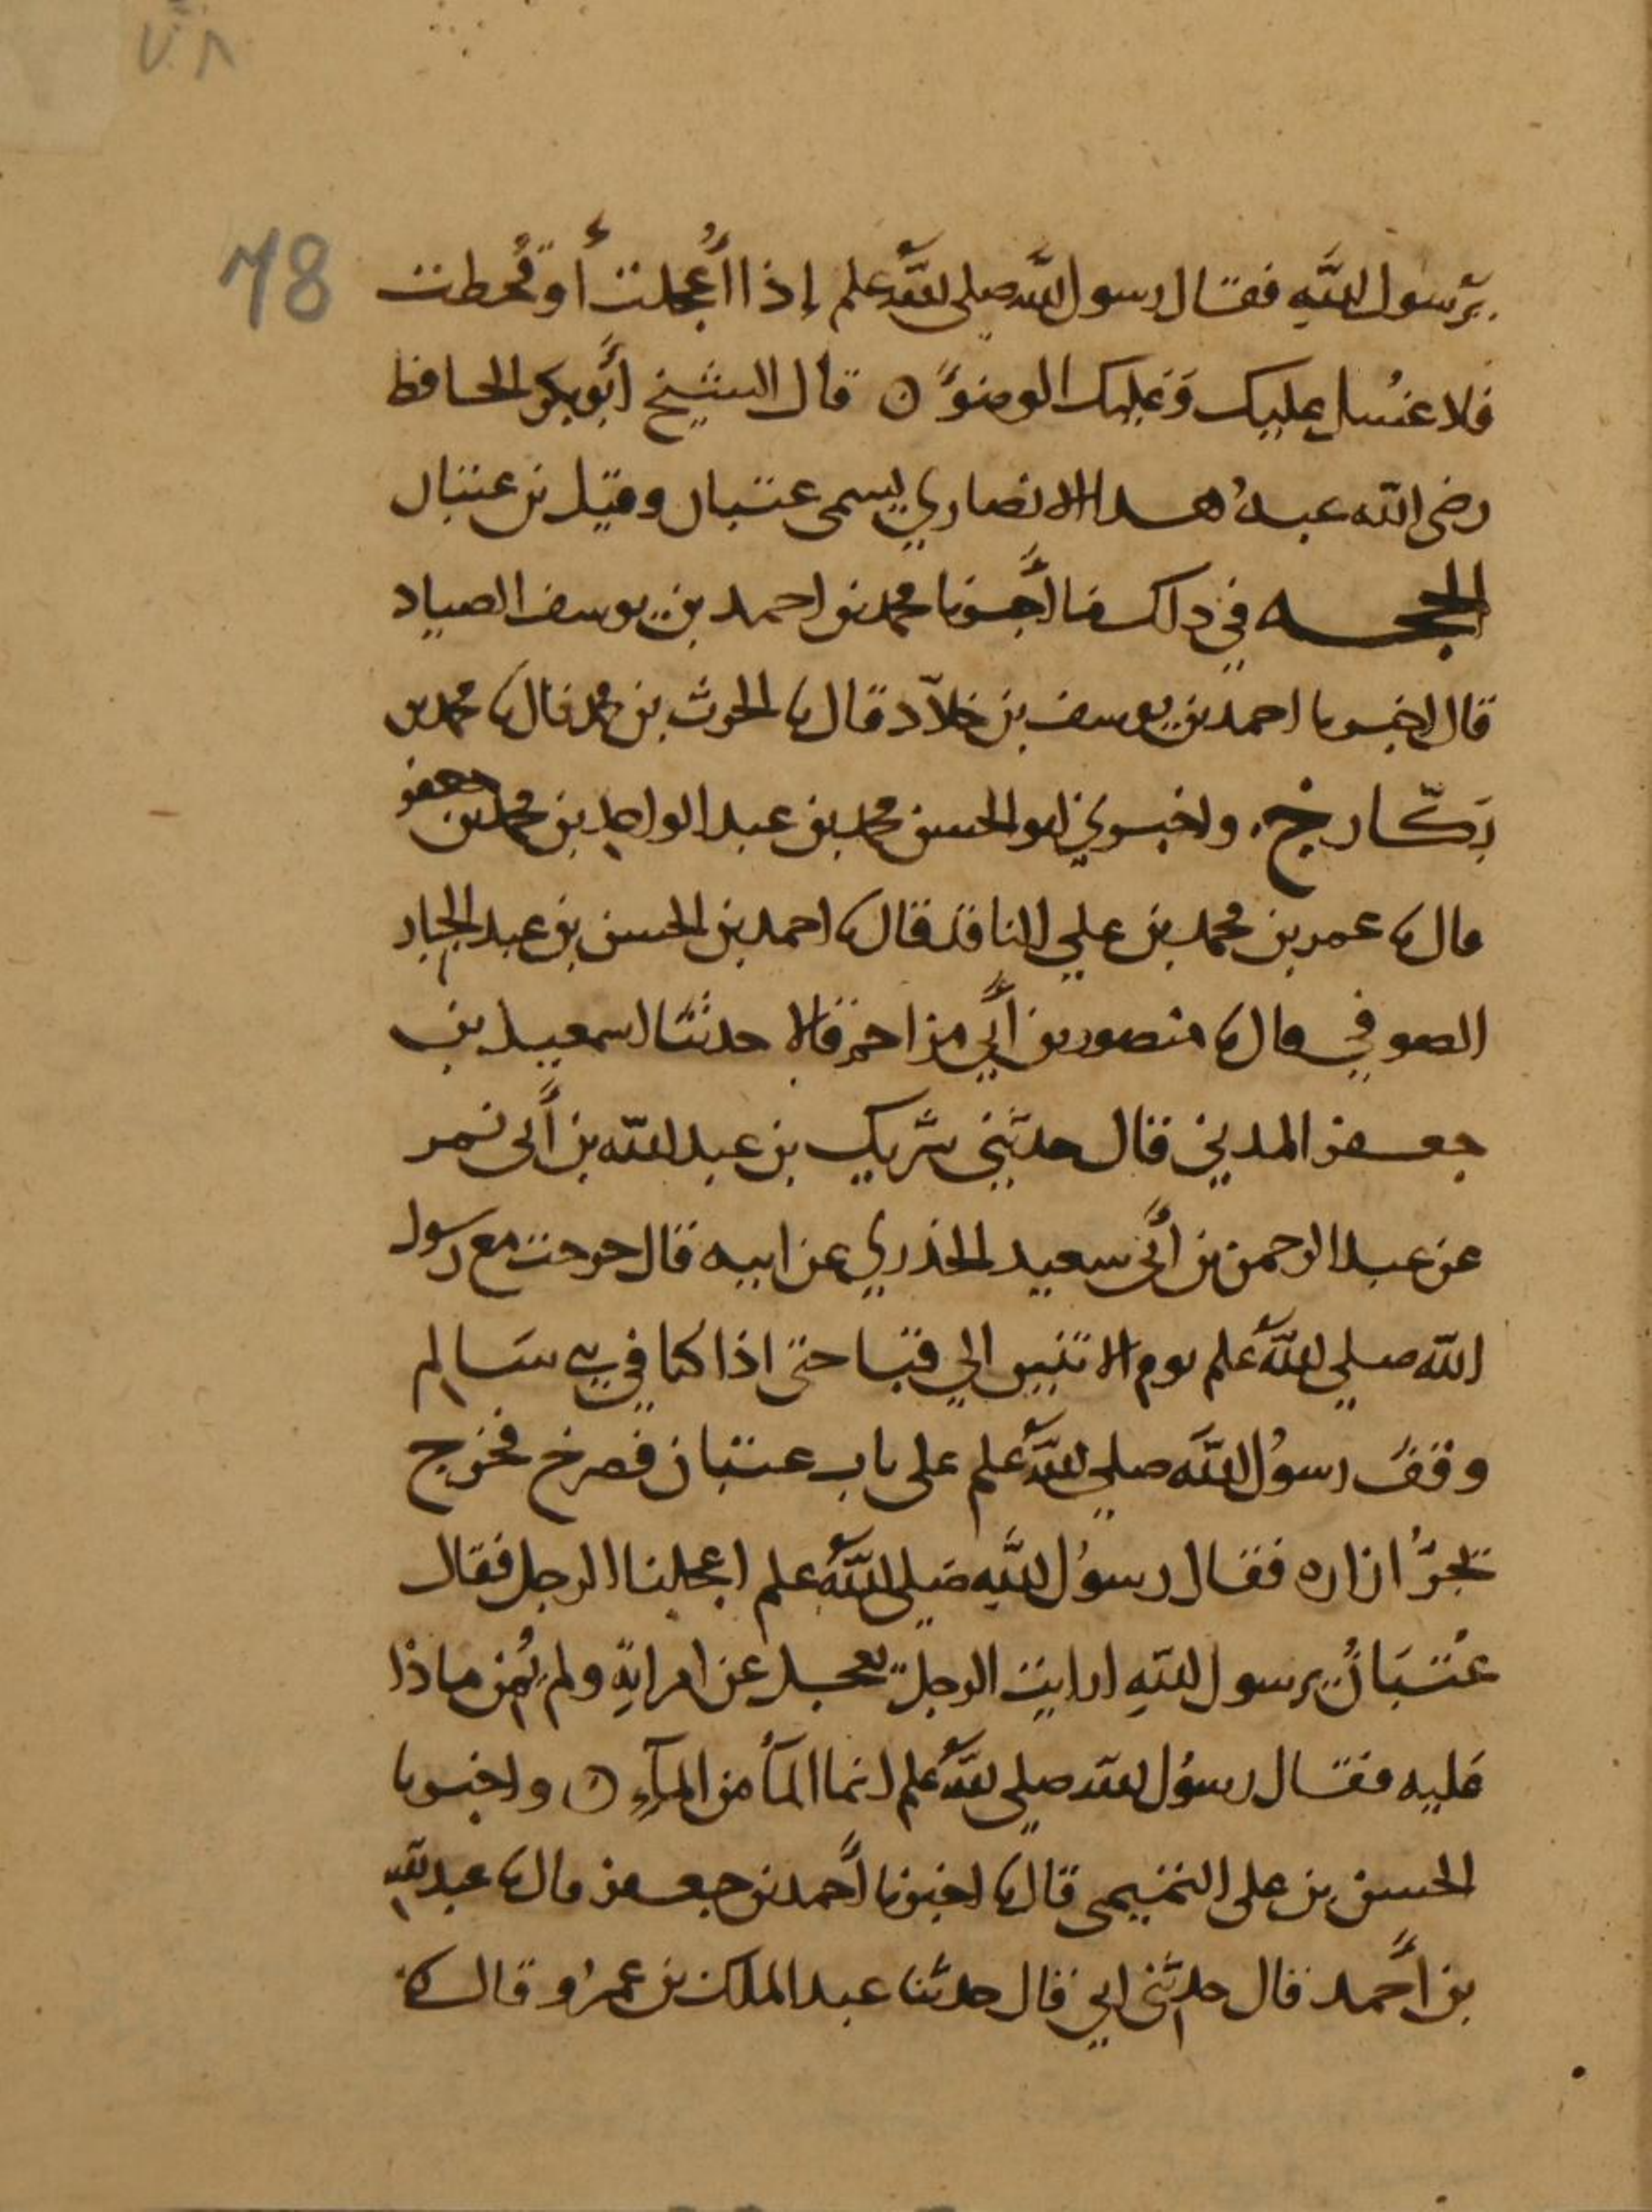 78
يرسول الله فقال رسول الله صلى الله علم إذا أعجلت أو قحطت
فلا غسل عليك وعليك الوضوء ن قال الشيخ أبو بكر الحافظ
رضى الله عنه هذا الانصاري يسمى عتبان وقيل بن عتبان
الحجه في ذلك ما أخبرنا محمد بن احمد بن يوسف الصياد
قال اخبرنا احمد بن يوسف بن خلاد قال نا الحرث بن محمد قال نا محمد بن
بكار خ. واخبرني ابو الحسن محمد بن عبد الواحد بن محمد بن جعفر
قال نا عمر بن محمد بن علي الناقد قال نا احمد بن الحسن بن عبد الجبار
الصوفي قال نا منصور بن أبي مزاحم قالا حدثنا اسمعيل بن
جعفر المديني قال حدثني شريك بن عبد الله بن أبى نمر
عن عبد الرحمن بن أبى سعيد الخدري عن ابيه قال خرجت مع رسول
الله صلي الله علم يوم الاثنين الي قبا حتى اذا كنا في بني سالم
وقف رسول الله صلي الله علم على باب عتبان فصرخ فخرج
يجر ازاره فقال رسول الله صلى الله علم اعجلنا الرجل فقال
عتبان يرسول الله ارايت الرجل يعجل عن امراته ولم يمن ماذا
عليه فقال رسول الله صلى الله علم انما الماء من الماء ن واخبرنا
الحسن بن على التميمى قال نا اخبرنا أحمد بن جعفر قال نا عبد الله
بن أحمد قال حدثنى ابي قال حدثنا عبد الملك بن عمرو قال نا